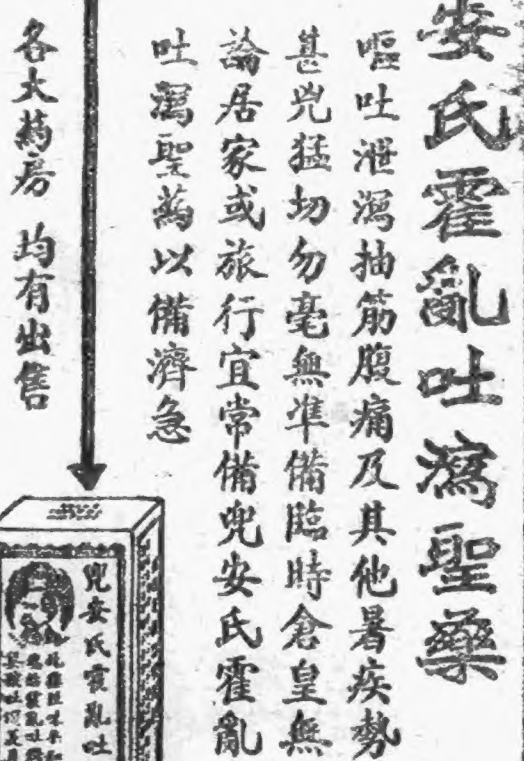 安氏霍亂吐瀉聖藥
嘔吐泄瀉抽筋腹痛及其他暑疾勢
甚兇猛切勿毫無準備臨時倉皇無
論居家或旅行宜常備兜安氏霍亂
吐瀉聖藥以備濟急
各大藥房 均有出售
兜安氏霍亂吐